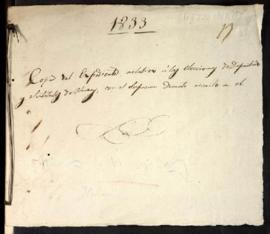 1833
Copia del Expediente relativo á las elecciones de Diputado
y Substituto de Huaz, con el Supremo Decreto recaido a el